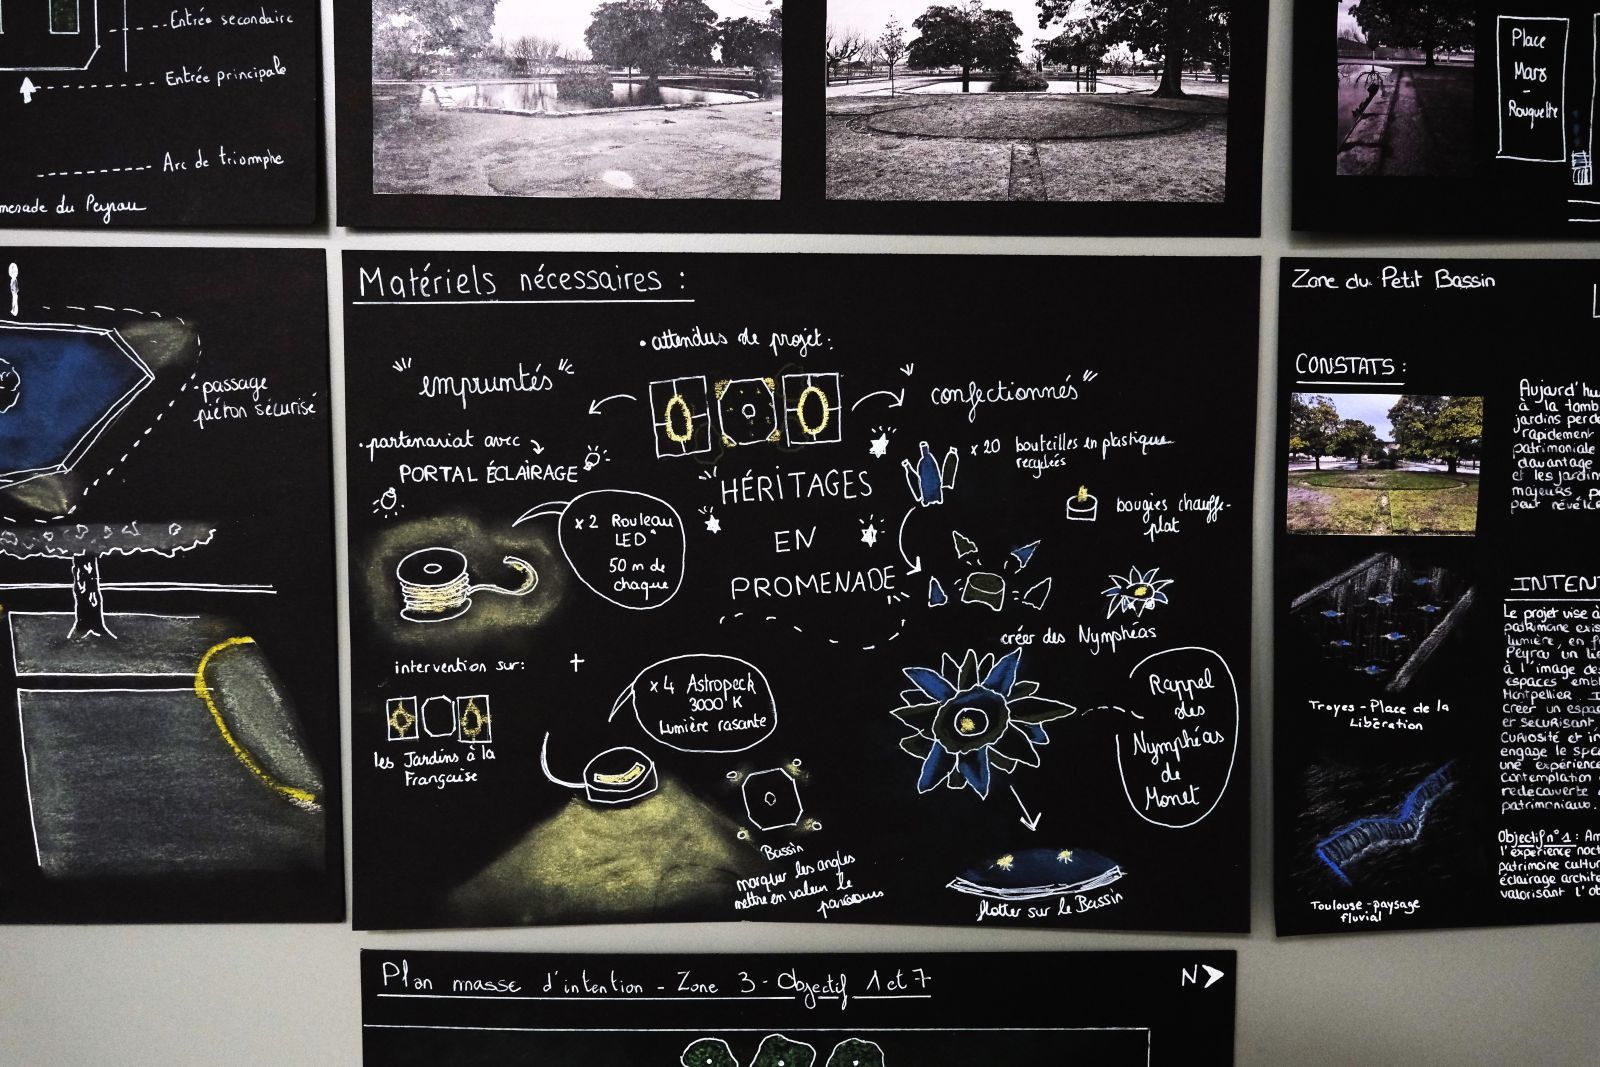 Entrée secondaire
Entrée principale
Arc de triomphe
menade du Peyrou
Place
Marg
-
Rouquette
passage
piéton sécurisé
Matériels nécessaires :
• attendus de projet :
"empruntés"
"confectionnés"
• partenariat avec
PORTAL ÉCLAIRAGE
x 2 Rouleau
LED
50 m de
chaque
HÉRITAGES
EN
PROMENADE
x 20 bouteilles en plastique
recyclées
bougies chauffe-
plat
créer des Nymphéas
intervention sur :
+
les Jardins à la
Française
x 4 Astropeck
3000°K
Lumière rasante
Bassin
marquer les angles
mettre en valeur le
parcours
Rappel
des
Nymphéas
de
Monet
flotter sur le Bassin
Zone du Petit Bassin
CONSTATS :
Aujourd'hu
à la tomb
jardins perde
rapidement
patrimoniale
davantage
et les jardin
majeurs p
peut révéle
Troyes - Place de la
Libération
Toulouse - paysage
fluvial
INTEN
Le projet vise à
patrimoine exis
lumière, en f
Peyrou un li
à l'image des
espaces emb
Montpellier. I
Créer un espa
et sécurisant,
curiosité et in
engage le spec
une expérience
contemplation
redécouverte
patrimoniaux.
Objectif n° 1 : Am
l'expérience noct
patrimoine cultur
éclairage archite
valorisant l'o
Plan masse d'intention - Zone 3 - Objectif 1 et 7
N